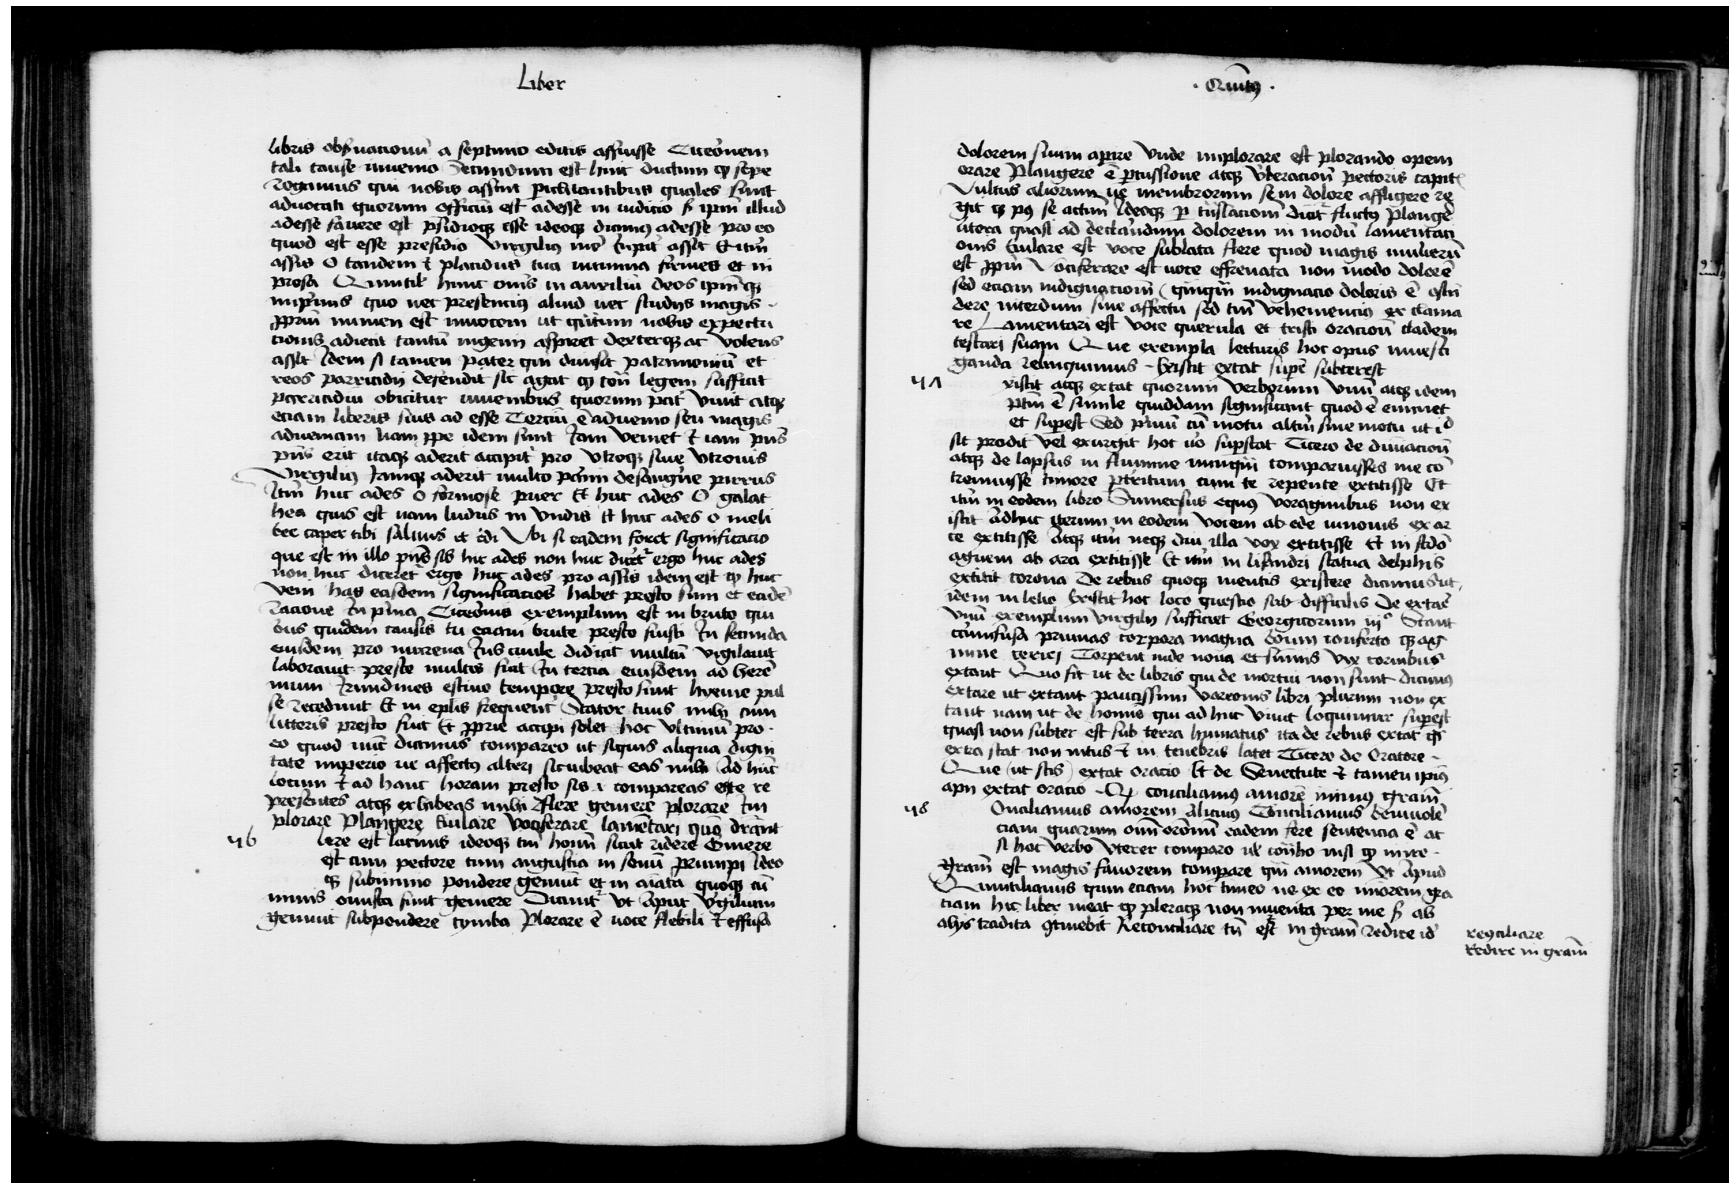 Liber
libris obseruacionū a septimo editis affuisse Ciceronem
tali cause inuenio Secundum est hinc ductum qꝫ sepe
rogamus qui nobis assint periclitantibus quales sunt
aduocati quorum officiū est adesse in iudicio sꝫ ipm̄ illud
adesse fauere est p̄sidioqꝫ esse ideoqꝫ dicimꝰ adesse pro eo
quod est esse presidio Virgilius
assis O tandem et placidus tua numina firmes et in
prosa Quintil hunc omīs in auxiliū deos ipm̄qꝫ
imprimis quo nec presencius aliud nec studijs magis
ꝓprium numen est inuocem ut quātum nobis expecta
cionis adiecit tantū ingenij aspiret dexterqꝫ ac volens
assit Idem si tamen pater qui diuisit patrimoniū et
reos parricidij defendit sic agat qꝫ legem sufficit
parricidiū obicitur iuuenibus quorum pater viuit atqꝫ
eciam liberis suis ad esse Terciū ē aduenio seu magis
adueniam nam ꝓpe idem sunt Iam veniet et iam
erit itaqꝫ aderit accipit̄ pro vtroqꝫ siue vtrouis
Virgiliꝰ Iamqꝫ aderit multo p̄ami desanguīe pirrus
Itm̄ huc ades o formose puer Et huc ades O galat
hea quis est nam ludus in vndis Et huc ades o meli
bee caper tibi saluus et edi Vbi si eadem foret significacio
que est in illo sis hic ades non huc ergo huc ades
non huc diceret ergo huc ades pro assis idem est qꝫ huc
veni has easdem significacioēs habet presto sum et eadē
racione In p̄ma Ciceronis exemplum est in bruto qui
quidem causis tu eciam brute presto fuisti In secunda
eiusdem pro murena Ius ciuile didicit multū vigilauit
laborauit presto multis fuit In tercia eiusdem ad here
nium Irundines estiuo tempore presto sunt hyeme pul
se recedunt Et in eplis frequent̄ Stator tuus mihi cum
litteris presto fuit Et ꝓprie accipi solet hoc vltimū pro
eo quod nūc dicimus compareo ut siquis aliqua digni
tate imperio ue affectꝰ alteri sic iubeat eas mihi ad hūc
locum et ad hanc horam presto sis et compareas esto re
presentes atqꝫ exhibeas mihi Flere gemere plorare Im
plorare Plangere eiulare vociferare lamētari
46 lere est lacrimis ideoqꝫ tm̄ hoīm sicut ridere Gemere
est cum pectore tum angustia in sonū prumpi Ideo
qꝫ subiniquo pondere gemūt et in aīata quoqꝫ cū
nimis onusta sunt gemere Dicunt̄ vt apud v̄gilium
gemuit subpondere cymba Plorare ē uoce flebili et effusa
· Quītꝰ ·
dolorem suum apire vnde implorare est plorando opem
orare Plangere ē ꝑcussione atqꝫ v̄beracion pectoris capit
vultus aliorum ue membrorum dolore affligere
se actum Ideoqꝫ ꝑ tn̄slacionm̄ dicit̄ fluctꝰ plange
litora quasi ad declarandum dolorem in modū lamentati
onis Eiulare est voce sublata flere quod magis mulierū
est ꝓpriū Vociferare est uoce effrenata non modo dolorē
sed eciam indignacionm̄ (qꝫqm̄ indignacio doloris ē osten
dere interdum sine affectu sed tm̄ vehemencius ex clama
re Lamentari est voce querula et tristi oracion cladem
testari suam Que exempla lecturis hoc opus inuesti
ganda relinquimus Existit extat supē subterest
47 xistit atqꝫ extat quorum verborum vnū atqꝫ idem
ē simile quiddam significant quod ē eminet
et supest Sed primū cū motu altm̄ sine motu ut id
sit prodit vel exurgit hoc uō supstat Cicero de diuinacion
atqꝫ de lapsus in flumine nunqm̄ comparuisses me cō
tremuisse timore ꝑterritum tum te repente extitisse Et
itm̄ in eodem libro Submersus equꝰ voraginibus non ex
istit adhuc iterum in eodem vocem ab ede iunonis ex ar
ce extitisse Atqꝫ itm̄ neqꝫ diu illa vox extitisse Et in scdō
aguem ab ara extitisse Et itm̄ in lisandri statua delphis
extitit corona De rebus quoqꝫ mentis existere dicimus ut
idem in lelio Existit hoc loco questio sub difficilis De extāe
vnū exemplum virgilij sufficiet Georgicorum iijº Stant
circumfusa pruinas corpora magna boum conferto qꝫ ag
mine cerici Torpent mole noua et sūmis vix cornibus
extant Quo fit ut de libris qui de mortui non sunt dicimꝰ
extare ut extant paucissimi varronis libri plurimi non ex
tant nam ut de homie qui ad huc viuit loquimur supest
quasi non subter est sub terra humatus ita de rebus extat qꝫ
extra stat non intus et in tenebris latet Cicero de Oratore
Que (ut scis) extat oracio Et de Senectute et tamen ipiꝰ
apij extat oracio Qꝫ conciliamus amorē minus grām
48 Onciliamus amorem alicuiꝰ Conciliamus beniuolē
ciam quarum omn̄ orōnm eadem fere sentencia ē at
si hoc verbo vterer comparo ul' nisi qꝫ inire
grām est magis fauorem compare qm̄ amorem Vt apud
Quintilianus quin eciam hoc timeo ne ex eo minorem gra
ciam hic liber ineat qꝫ pleraqꝫ non inuenta per me sꝫ ab
alijs tradita ꝯtinebit Reconciliare tn̄ est in grām redire id
reꝯciliare
Redire in grām